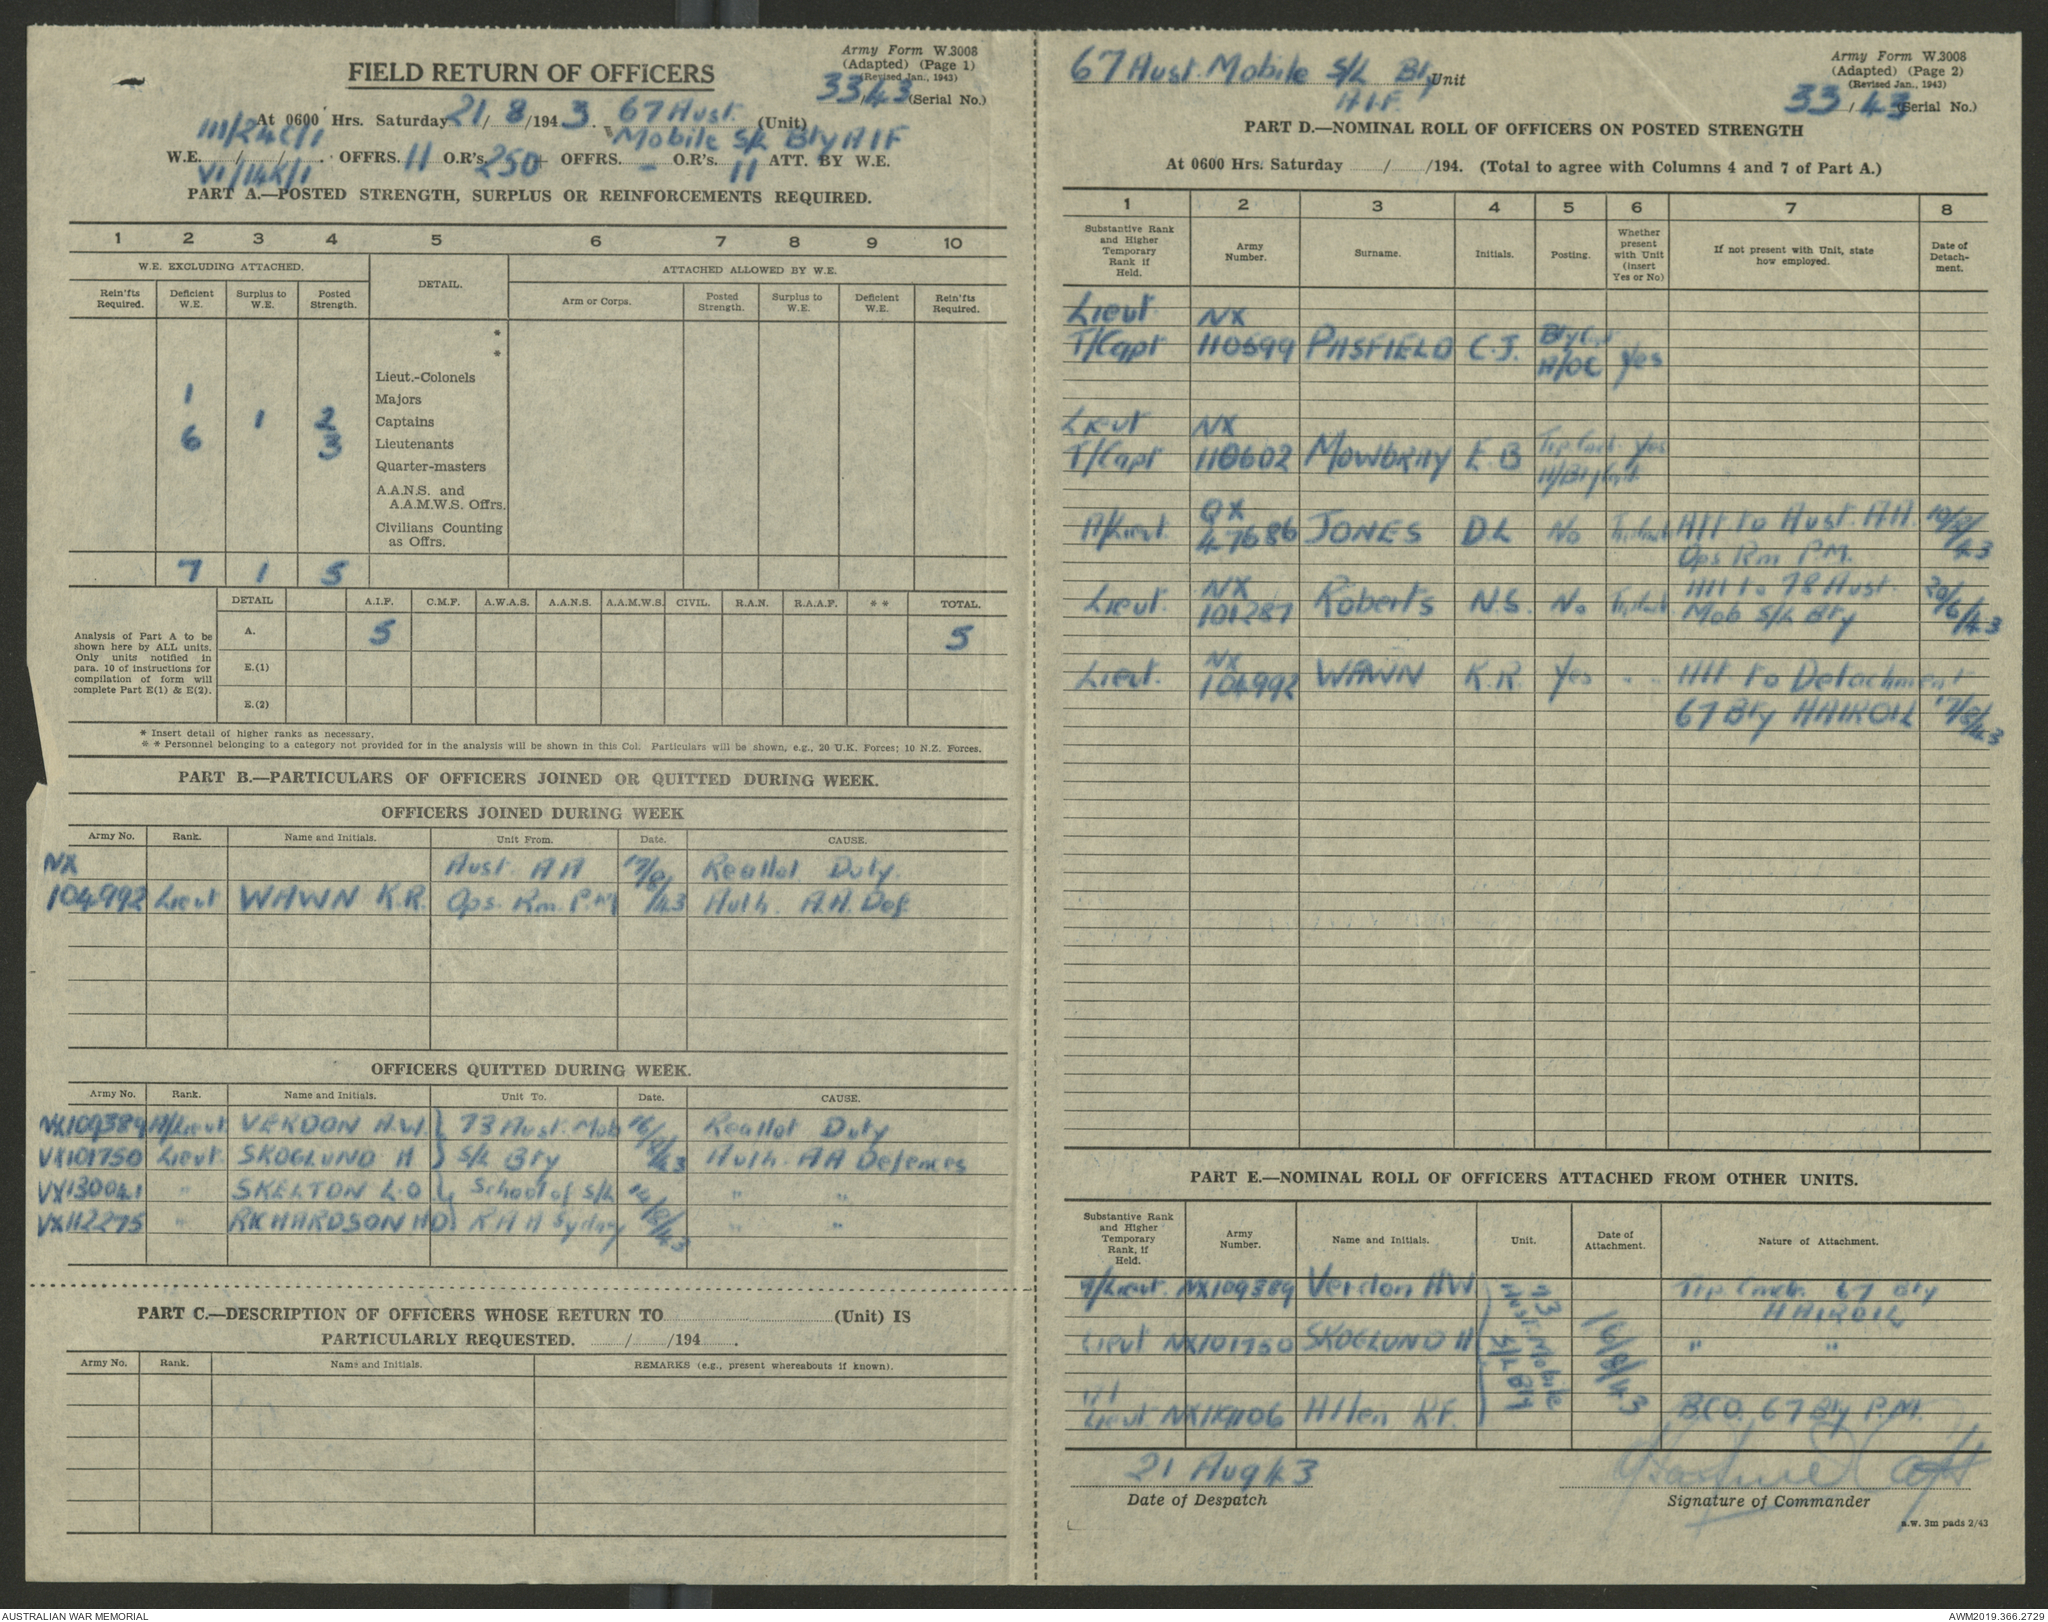 Army Form W.3008
(Adapted) (Page 1)
(Revised Jan., 1943)
33/43 (Serial No.)
FIELD RETURN OF OFFICERS
At 0600 Hrs. Saturday 21/8/1943. 67 Aust. (Unit)
Mobile S/L Bty AIF
III/24C/1
W.E. / / . OFFRS. 11 O.R's. 250 + OFFRS. - O.R's. 11 ATT. BY W.E.
VI/14K/1
PART A.—POSTED STRENGTH, SURPLUS OR REINFORCEMENTS REQUIRED.
1 2 3 4 5 6 7 8 9 10
W.E. EXCLUDING ATTACHED. DETAIL. ATTACHED ALLOWED BY W.E.
Rein'fts Required. Deficient W.E. Surplus to W.E. Posted Strength. Arm or Corps. Posted Strength. Surplus to W.E. Deficient W.E. Rein'fts Required.
*
*
Lieut.-Colonels
1 Majors
1 2 Captains
6 3 Lieutenants
Quarter-masters
A.A.N.S. and
A.A.M.W.S. Offrs.
Civilians Counting
as Offrs.
7 1 5
Analysis of Part A to be
shown here by ALL units.
Only units notified in
para. 10 of instructions for
compilation of form will
complete Part E(1) & E(2).
DETAIL A.I.F. C.M.F. A.W.A.S. A.A.N.S. A.A.M.W.S. CIVIL. R.A.N. R.A.A.F. ** TOTAL.
A. 5 5
E.(1)
E.(2)
* Insert detail of higher ranks as necessary.
** Personnel belonging to a category not provided for in the analysis will be shown in this Col. Particulars will be shown, e.g., 20 U.K. Forces; 10 N.Z. Forces.
PART B.—PARTICULARS OF OFFICERS JOINED OR QUITTED DURING WEEK.
OFFICERS JOINED DURING WEEK
Army No. Rank. Name and Initials. Unit From. Date. CAUSE.
NX Aust. AA 17/8/ Reallot Duty.
104992 Lieut WAWN K.R. Ops. Rm. P.M /43 Auth. A.A. Def.
OFFICERS QUITTED DURING WEEK.
Army No. Rank. Name and Initials. Unit To. Date. CAUSE.
NX109389 A/Lieut VERDON H.W. 73 Aust. Mob 16/8 Reallot Duty
VX101750 Lieut. SKOGLUND H S/L Bty /43 Auth. AA Defences
VX130041 " SKELTON L.O School of S/L " "
VX112275 " RICHARDSON HD RAA Sydney /8/43 " "
PART C.—DESCRIPTION OF OFFICERS WHOSE RETURN TO (Unit) IS
PARTICULARLY REQUESTED. / /194 .
Army No. Rank. Name and Initials. REMARKS (e.g., present whereabouts if known).
67 Aust. Mobile S/L Bty Unit
A.I.F.
Army Form W.3008
(Adapted) (Page 2)
(Revised Jan., 1943)
33/43 (Serial No.)
PART D.—NOMINAL ROLL OF OFFICERS ON POSTED STRENGTH
At 0600 Hrs. Saturday / /194. (Total to agree with Columns 4 and 7 of Part A.)
1 2 3 4 5 6 7 8
Substantive Rank and Higher Temporary Rank if Held. Army Number. Surname. Initials. Posting. Whether present with Unit (insert Yes or No) If not present with Unit, state how employed. Date of Detachment.
Lieut. NX
T/Capt 110599 PASFIELD C.J. A/OC Yes
Lieut NX
T/Capt 110602 MOWBRAY E.B Yes
QX
A/Lieut. 47686 JONES D.L No Att to Aust. AA. 10/8/43
Ops Rm P.M.
NX Att to 78 Aust. 20/6/43
Lieut. 101287 Roberts N.S. No Mob S/L Bty
NX
Lieut. 104992 WAWN K.R. Yes " " Att to Detachment
67 Bty HAIROIL 17/8/43
PART E.—NOMINAL ROLL OF OFFICERS ATTACHED FROM OTHER UNITS.
Substantive Rank and Higher Temporary Rank, if Held. Army Number. Name and Initials. Unit. Date of Attachment. Nature of Attachment.
A/Lieut. NX109389 Verdon HW 73 Aust. Mobile S/L Bty 16/8/43 Trp Cmdr. 67 Bty
HAIROIL
Lieut NX101750 SKOGLUND H " "
Lieut Allen R.F. 67 Bty P.M.
21 Aug 43
Date of Despatch
Signature of Commander
a.w. 3m pads 2/43
AUSTRALIAN WAR MEMORIAL
AWM2019.366.2729